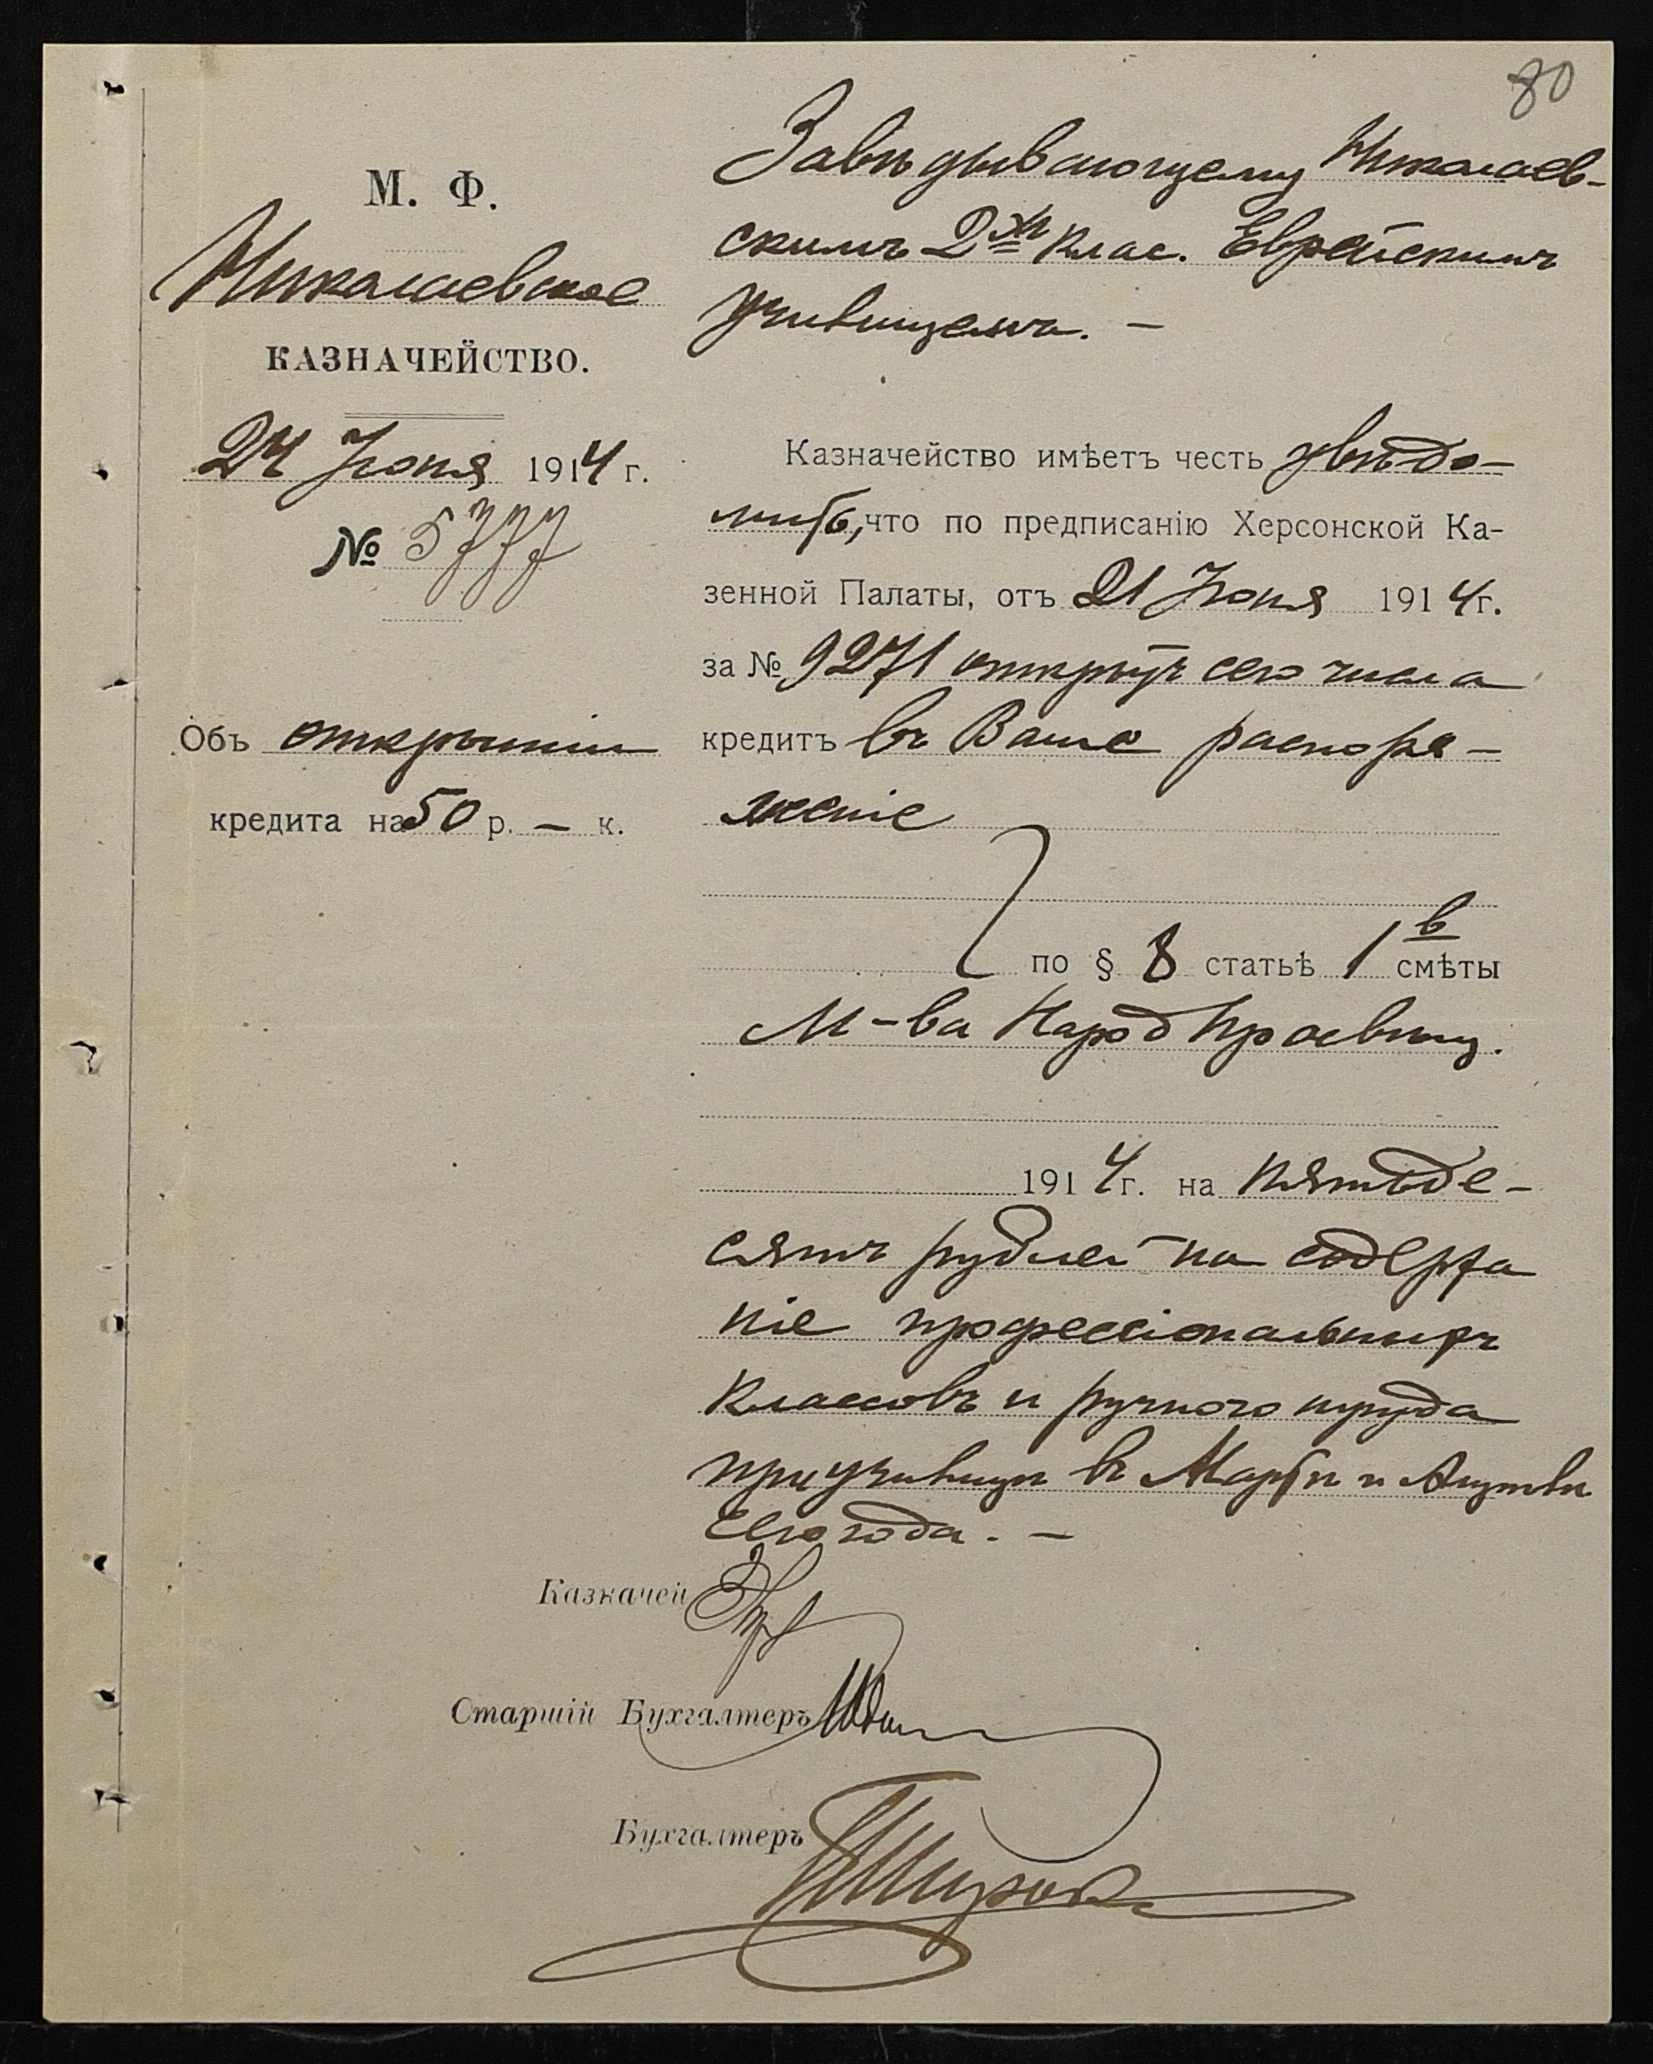 80
М. Ф.
Николаевское
КАЗНАЧЕЙСТВО.
24 Іюня 1914 г.
№ 5777
Объ открытіи
кредита на 50 р. — к.
Завѣдывающему Николаев-
скимъ 2хъ клас. Еврейскимъ
училищемъ. —
Казначейство имѣетъ честь увѣдо-
мить, что по предписанію Херсонской Ка-
зенной Палаты, отъ 21 Іюня 1914 г.
за № 9271 открытъ сего числа
кредитъ въ Ваше распоря-
женіе
по § 8 статьѣ 1 в смѣты
М-ва Народ Просвѣщ.
1914 г. на пятьде-
сятъ рублей на содержа
ніе профессіональныхъ
классовъ и ручного труда
при училищѣ въ Мартѣ и Августѣ
сего года. —
Казначей
Старшій Бухгалтеръ
Бухгалтеръ